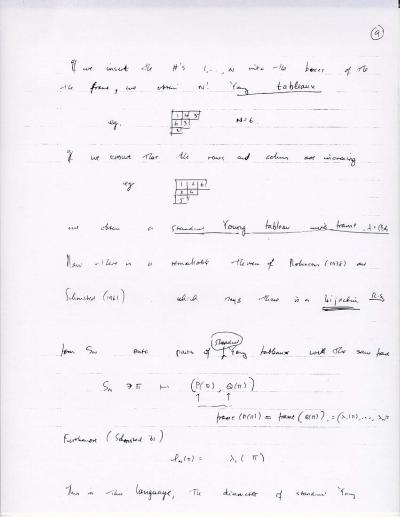 9
If we insert the #'s 1,..., N into the boxes of the
the frame, we obtain N! Young tableaux
eg. 1 4 5 N=6
6 3
2
If we ensure that the rows and column are increasing
eg 1 2 6
3 4
5
we obtain a standard Young tableau with frame λ
Now there is a remarkable theorem of Robinson (1938) and
Schensted (1961) which says there is a bijection R-S
from Sn onto pairs of standard Young tableaux with the same frame
Sn ∋ π ↦ (P(π), Q(π))
frame (P(π)) = frame (Q(π)) = (λ1(π), ...,
Furthermore (Schensted 61)
ℓn(π) = λ1(π)
Thus in this language, the diameter of standard Young